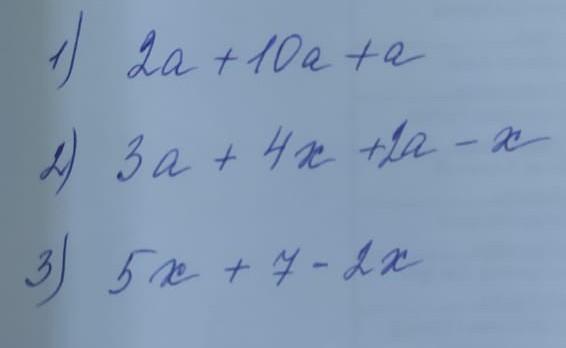 1) 2a + 10a + a
2) 3a + 4x + 2a - x
3) 5x + 7 - 2x